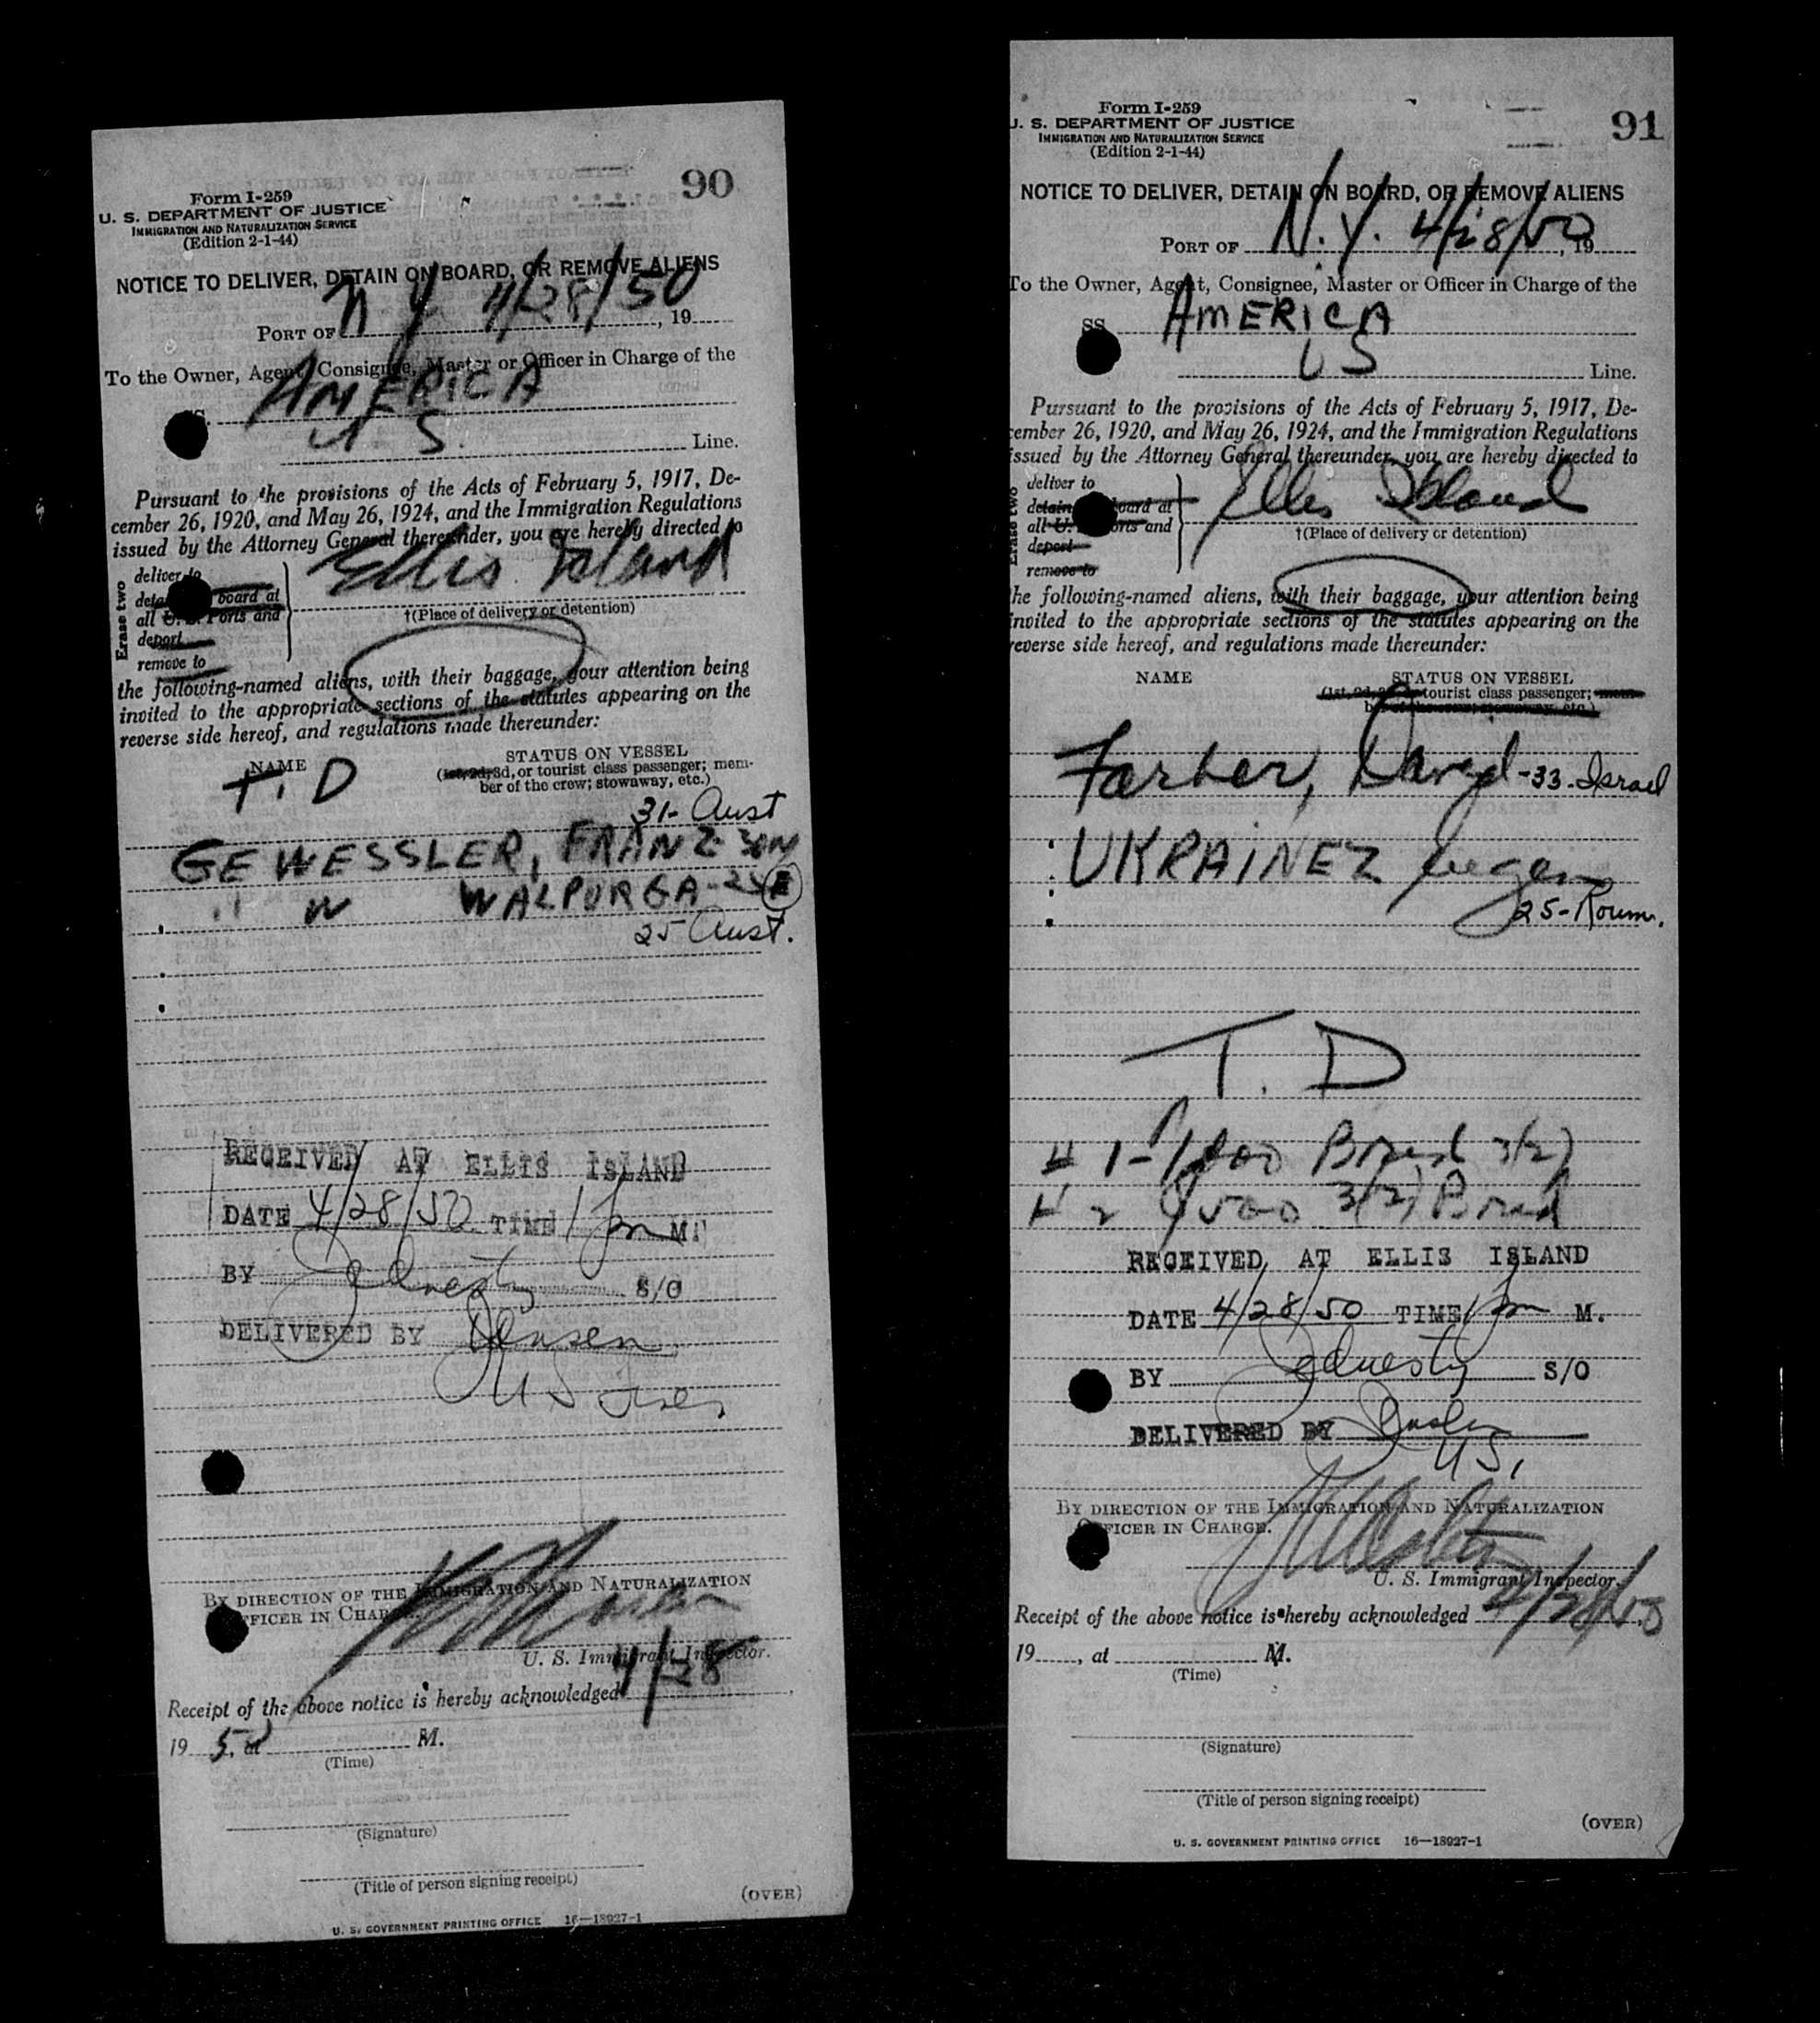 90
Form I-259
U. S. DEPARTMENT OF JUSTICE
IMMIGRATION AND NATURALIZATION SERVICE
(Edition 2-1-44)
NOTICE TO DELIVER, DETAIN ON BOARD, OR REMOVE ALIENS
PORT OF N Y 4/28/50, 19
To the Owner, Agent, Consignee, Master or Officer in Charge of the
AMERICA
U S. Line.
Pursuant to the provisions of the Acts of February 5, 1917, De-
cember 26, 1920, and May 26, 1924, and the Immigration Regulations
issued by the Attorney General thereunder, you are hereby directed to
Erase two
deliver to
detain board at
all U. S. Ports and
deport
remove to
Ellis Island
†(Place of delivery or detention)
the following-named aliens, with their baggage, your attention being
invited to the appropriate sections of the statutes appearing on the
reverse side hereof, and regulations made thereunder:
NAME STATUS ON VESSEL
(1st, 2d, 3d, or tourist class passenger; mem-
ber of the crew; stowaway, etc.)
T. D
31- Aust
GEWESSLER, FRANZ
" W WALPURGA
25 Aust.
RECEIVED AT ELLIS ISLAND
DATE 4/28/50 TIME 1 pm M.
BY S/O
DELIVERED BY
U S
BY DIRECTION OF THE IMMIGRATION AND NATURALIZATION
OFFICER IN CHARGE.
U. S. Immigrant Inspector.
Receipt of the above notice is hereby acknowledged 4/28
19 50, at M.
(Time)
(Signature)
(Title of person signing receipt)
(OVER)
U. S. GOVERNMENT PRINTING OFFICE 16—18927-1
91
Form I-259
U. S. DEPARTMENT OF JUSTICE
IMMIGRATION AND NATURALIZATION SERVICE
(Edition 2-1-44)
NOTICE TO DELIVER, DETAIN ON BOARD, OR REMOVE ALIENS
PORT OF N.Y. 4/28/50, 19
To the Owner, Agent, Consignee, Master or Officer in Charge of the
SS. AMERICA
US Line.
Pursuant to the provisions of the Acts of February 5, 1917, De-
cember 26, 1920, and May 26, 1924, and the Immigration Regulations
issued by the Attorney General thereunder, you are hereby directed to
Erase two
deliver to
detain board at
all U. Ports and
deport
remove to
Ellis Island
†(Place of delivery or detention)
the following-named aliens, with their baggage, your attention being
invited to the appropriate sections of the statutes appearing on the
reverse side hereof, and regulations made thereunder:
NAME STATUS ON VESSEL
(1st, 2d, tourist class passenger; mem-
ber of the crew; stowaway, etc.)
Farber, David -33- Israel
UKRAINEZ
25-Roum.
T. D
RECEIVED AT ELLIS ISLAND
DATE 4/28/50 TIME 1 pm M.
BY S/O
DELIVERED BY
U S.
BY DIRECTION OF THE IMMIGRATION AND NATURALIZATION
OFFICER IN CHARGE.
U. S. Immigrant Inspector.
Receipt of the above notice is hereby acknowledged 4/28/50
19, at M.
(Time)
(Signature)
(Title of person signing receipt)
(OVER)
U. S. GOVERNMENT PRINTING OFFICE 16—18927-1